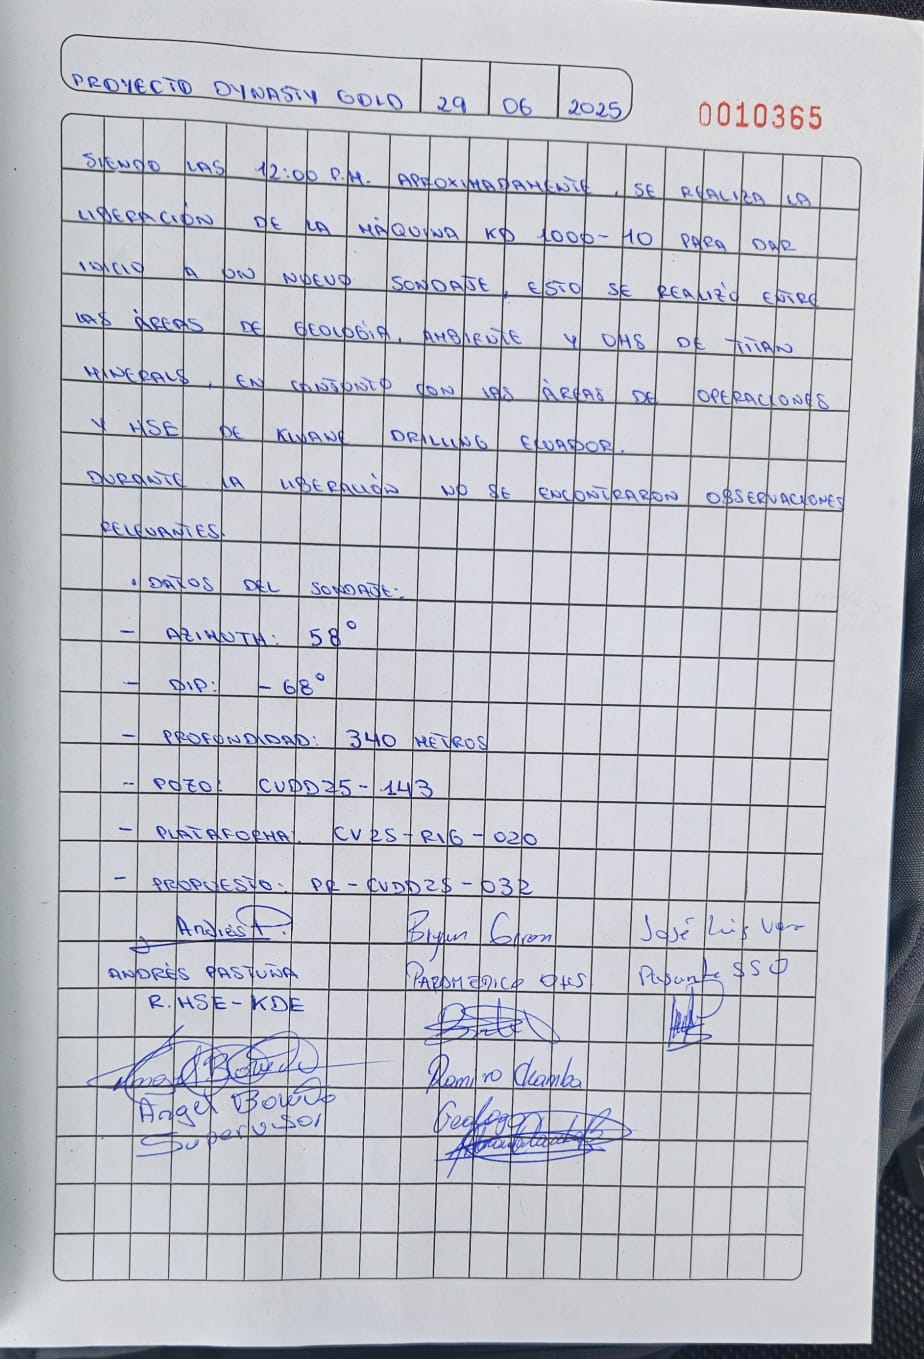 PROYECTO DYNASTY GOLD 29 06 2025
0010365
SIENDO LAS 12:00 P.M. APROXIMADAMENTE, SE REALIZA LA
LIBERACIÓN DE LA MÁQUINA KD 1000-10 PARA DAR
INICIO A UN NUEVO SONDAJE, ESTO SE REALIZÓ ENTRE
LAS ÁREAS DE GEOLOGÍA, AMBIENTE Y OHS DE TITAN
MINERALS, EN CONJUNTO CON LAS ÁREAS DE OPERACIONES
Y HSE DE KLUANE DRILLING ECUADOR.
DURANTE LA LIBERACIÓN NO SE ENCONTRARON OBSERVACIONES
RELEVANTES.
. DATOS DEL SONDAJE:
- AZIMUTH: 58°
- DIP: -68°
- PROFUNDIDAD: 340 METROS
- POZO: CVDD25-143
- PLATAFORMA: CV25-R16-020
- PROPUESTO: PR-CVDD25-032
Andrés P. Bryan Giron José Luis Vera
ANDRÉS PASTUÑA PARAMEDICO OHS Pasante SSO
R. HSE-KDE
Ramiro Chamba
Angel Geólogo
Supervisor